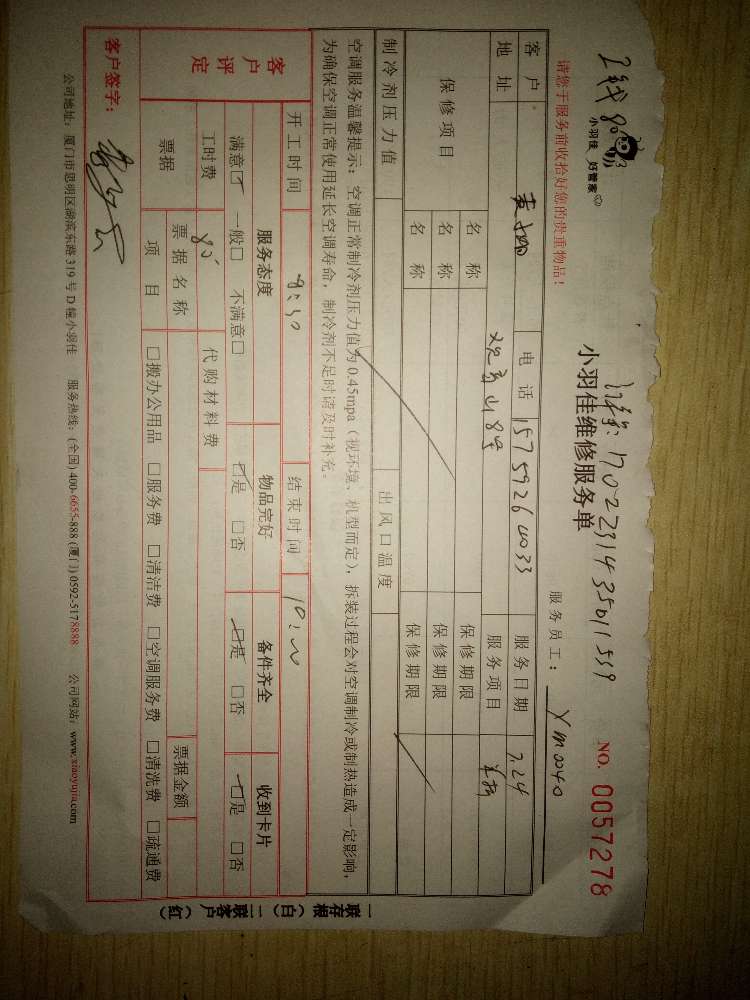 小羽佳 好管家
请您于服务前收拾好您的贵重物品！
小羽佳维修服务单
NO. 0057278
服务员工： Ym0040
客户 电话 15759264033 服务日期 2.24
地址 服务项目
保修项目 名称 保修期限
名称 保修期限
名称 保修期限
制冷剂压力值 出风口温度
空调服务温馨提示：空调正常制冷剂压力值为0.45mpa（视环境、机型而定），拆装过程会对空调制冷或制热造成一定影响，
为确保空调正常使用延长空调寿命，制冷剂不足时请及时补充。
开工时间 8:30 结束时间 10:00
客户评定 服务态度 物品完好 备件齐全 收到卡片
满意☑ 一般□ 不满意□ ☑是 □否 ☑是 □否 ☑是 □否
工时费 80 代购材料费
票据 票据名称 票据金额
项目 □搬办公用品 □服务费 □清洁费 □空调服务费 □清洗费 □疏通费
客户签字：
公司地址：厦门市思明区湖滨东路319号D幢小羽佳 服务热线：(全国)400-6655-888 (厦门)0592-5178888 公司网站：www.xiaoyujia.com
一联存根（白）二联客户（红）